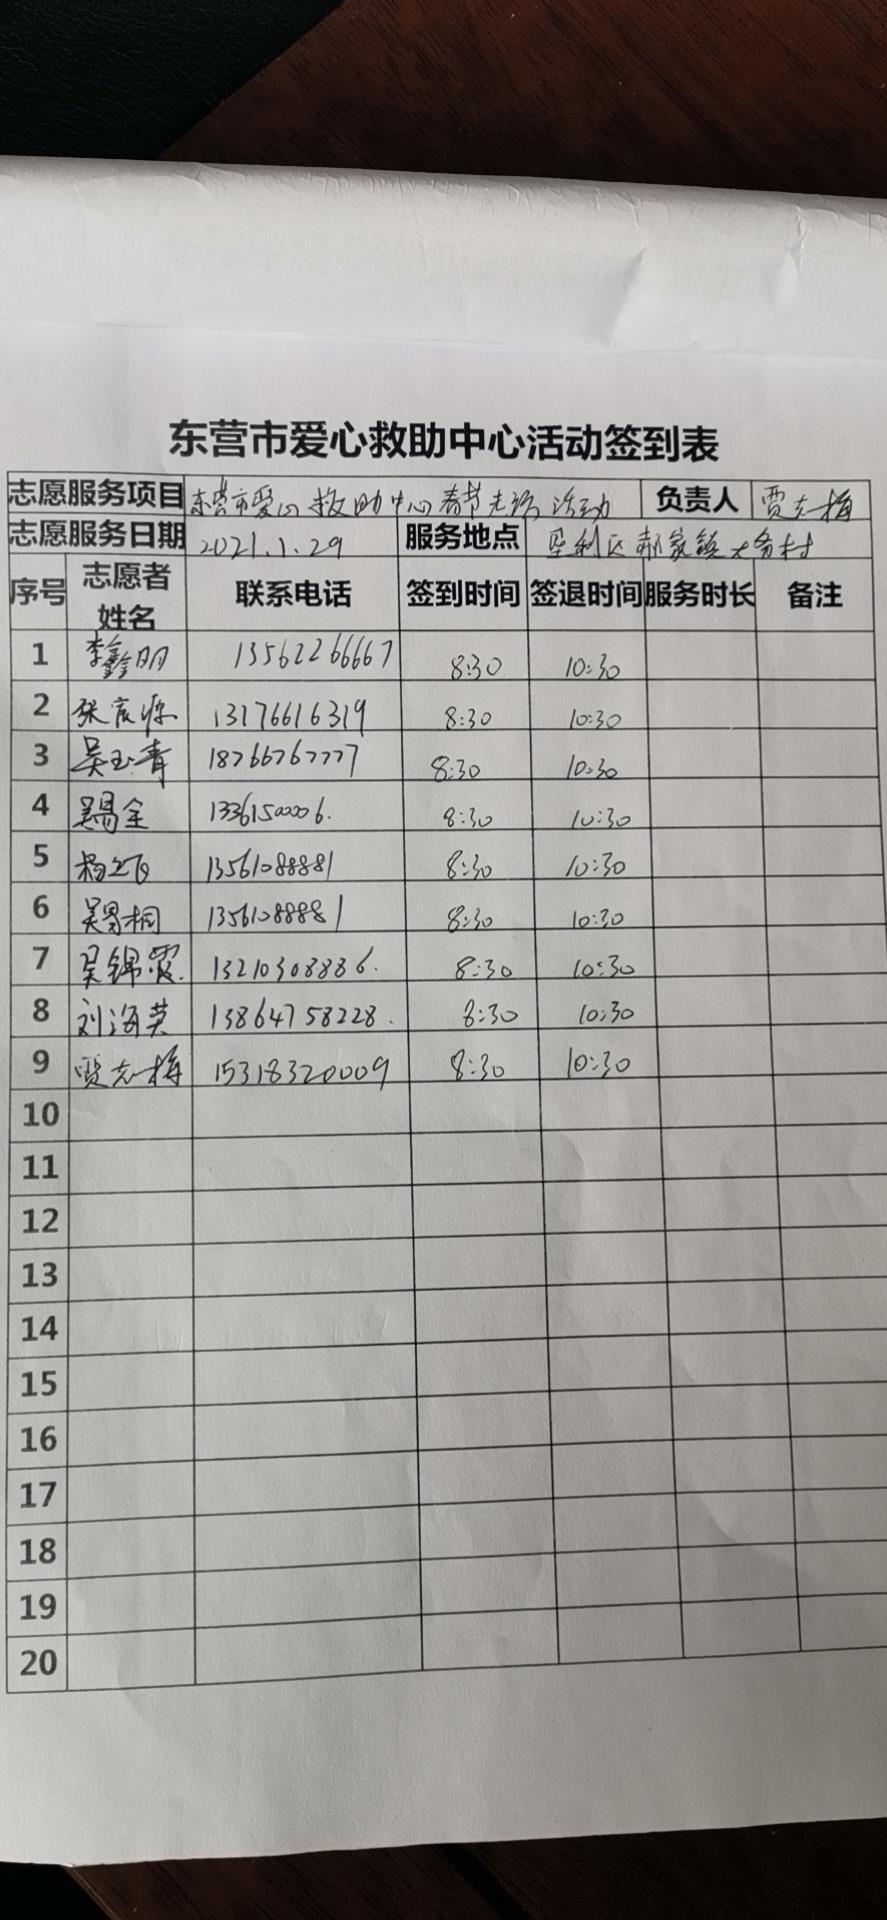 东营市爱心救助中心活动签到表
志愿服务项目 东营市爱心救助中心春节走访活动 负责人 贾志梅
志愿服务日期 2021.1.29 服务地点 垦利区郝家镇大务村
序号 志愿者姓名 联系电话 签到时间 签退时间 服务时长 备注
1 李鑫明 13562266667 8:30 10:30
2 张宸源 13176616319 8:30 10:30
3 吴玉青 18766767777 8:30 10:30
4 13361500006. 8:30 10:30
5 13561088881 8:30 10:30
6 13561088881 8:30 10:30
7 吴锦霞. 13210308886. 8:30 10:30
8 刘海英 13864758228. 8:30 10:30
9 贾志梅 15318320009 8:30 10:30
10
11
12
13
14
15
16
17
18
19
20